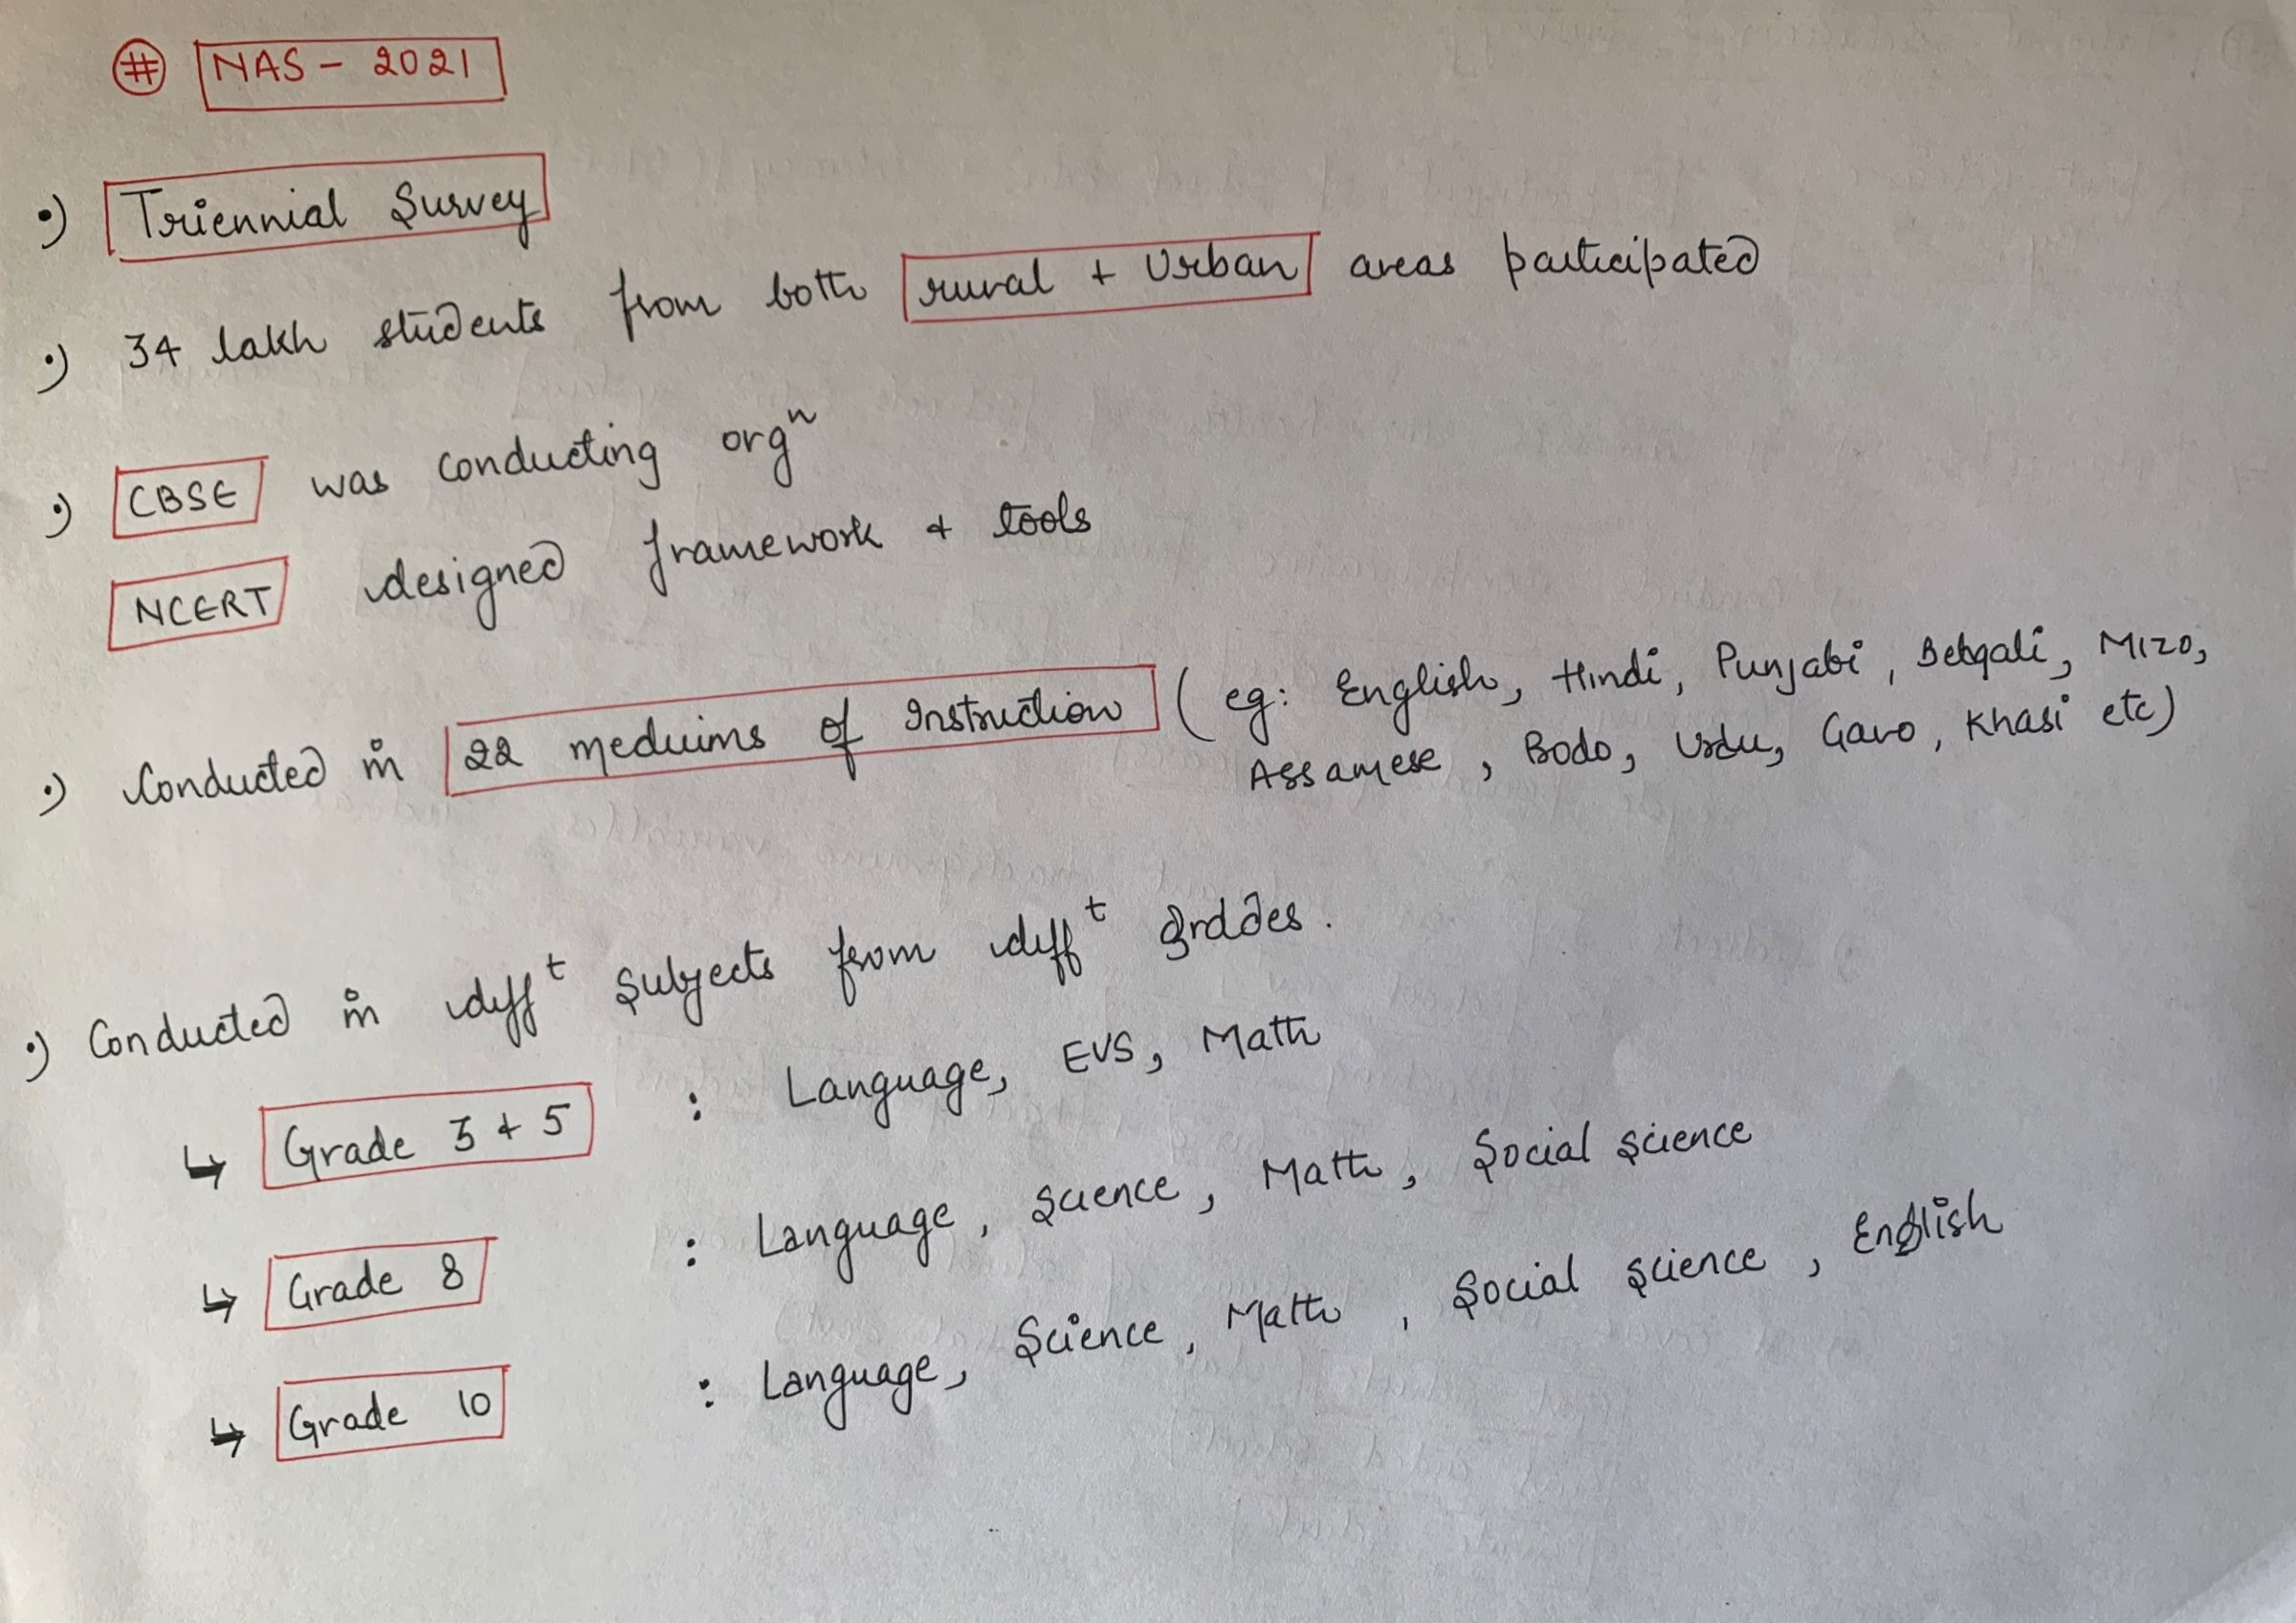 # NAS - 2021
•) Triennial Survey
•) 34 lakh students from both rural + Urban areas participated
•) CBSE was conducting orgⁿ
NCERT designed framework & tools
•) Conducted in 22 meduims of Instruction ( eg: English, Hindi, Punjabi, Bengali, Mizo,
Assamese, Bodo, Urdu, Garo, Khasi etc)
•) Conducted in diffᵗ subjects from diffᵗ grades.
↳ Grade 3 & 5 : Language, EVS, Math
↳ Grade 8 : Language, Science, Math, Social science
↳ Grade 10 : Language, Science, Math, Social science, English